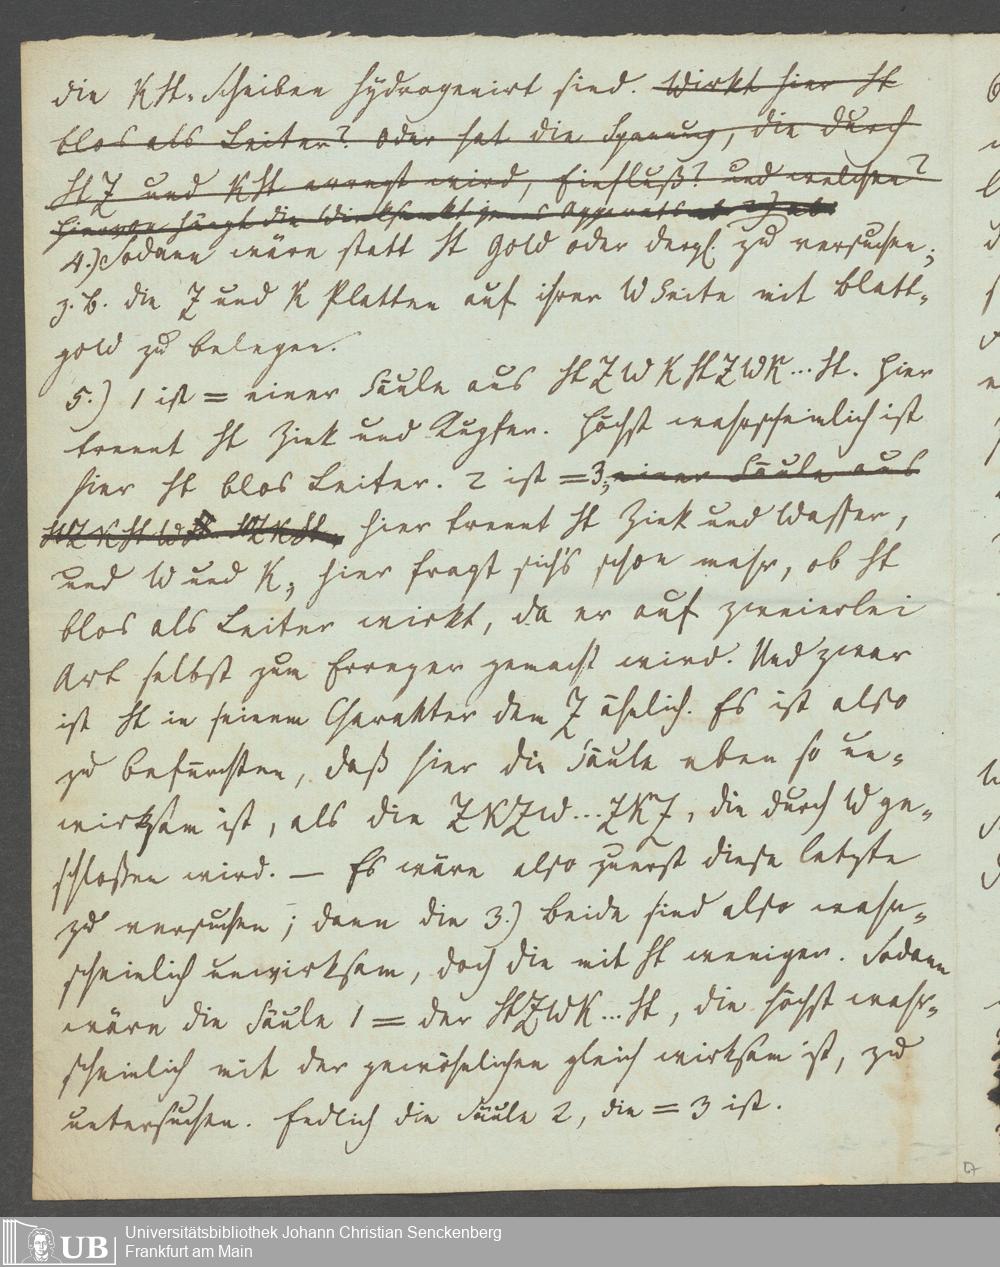 die KSt.Scheiben hydrogenirt sind. Wirkt hier St
blos als Leiter? Oder hat die Spanung, die durch
StZ und KSt erregt wird, Einfluß? und welchen?
Hiervon hängt die Wirksamkt jenes Apparats ab
4.) Sodann wäre statt St Gold oder dergl. zu versuchen;
z.B. die Z und K Platten auf ihrer W Seite mit Blatt-
gold zu belegen.
5.) 1 ist = einer Säule aus StZWKStZWK...St. Hier
trennt St Zink und Kupfer. Höchst wahrscheinlich ist
hier St blos Leiter. 2 ist =3, einer Säule aus
StZKStW StZKSt. hier trennt St Zink und Wasser,
und W und K; hier fragt sich's schon mehr, ob St
blos als Leiter wirkt, da er auf zweierlei
Art selbst zum Erreger gemacht wird. Und zwar
ist St in seinem Charakter dem Z ähnlich. Es ist also
zu befürchten, daß hier die Säule eben so un-
wirksam ist, als die ZKZW...ZKZ, die durch W ge-
schlossen wird. — Es wäre also zuerst diese letzte
zu versuchen; dann die 3.) Beide sind also wahr-
scheinlich unwirksam, doch die mit St weniger. Sodann
wäre die Säule 1 = der StZWK...St, die höchst wahr-
scheinlich mit der gewöhnlichen gleich wirksam ist, zu
untersuchen. Endlich die Säule 2, die = 3 ist.
UB
Universitätsbibliothek Johann Christian Senckenberg
Frankfurt am Main